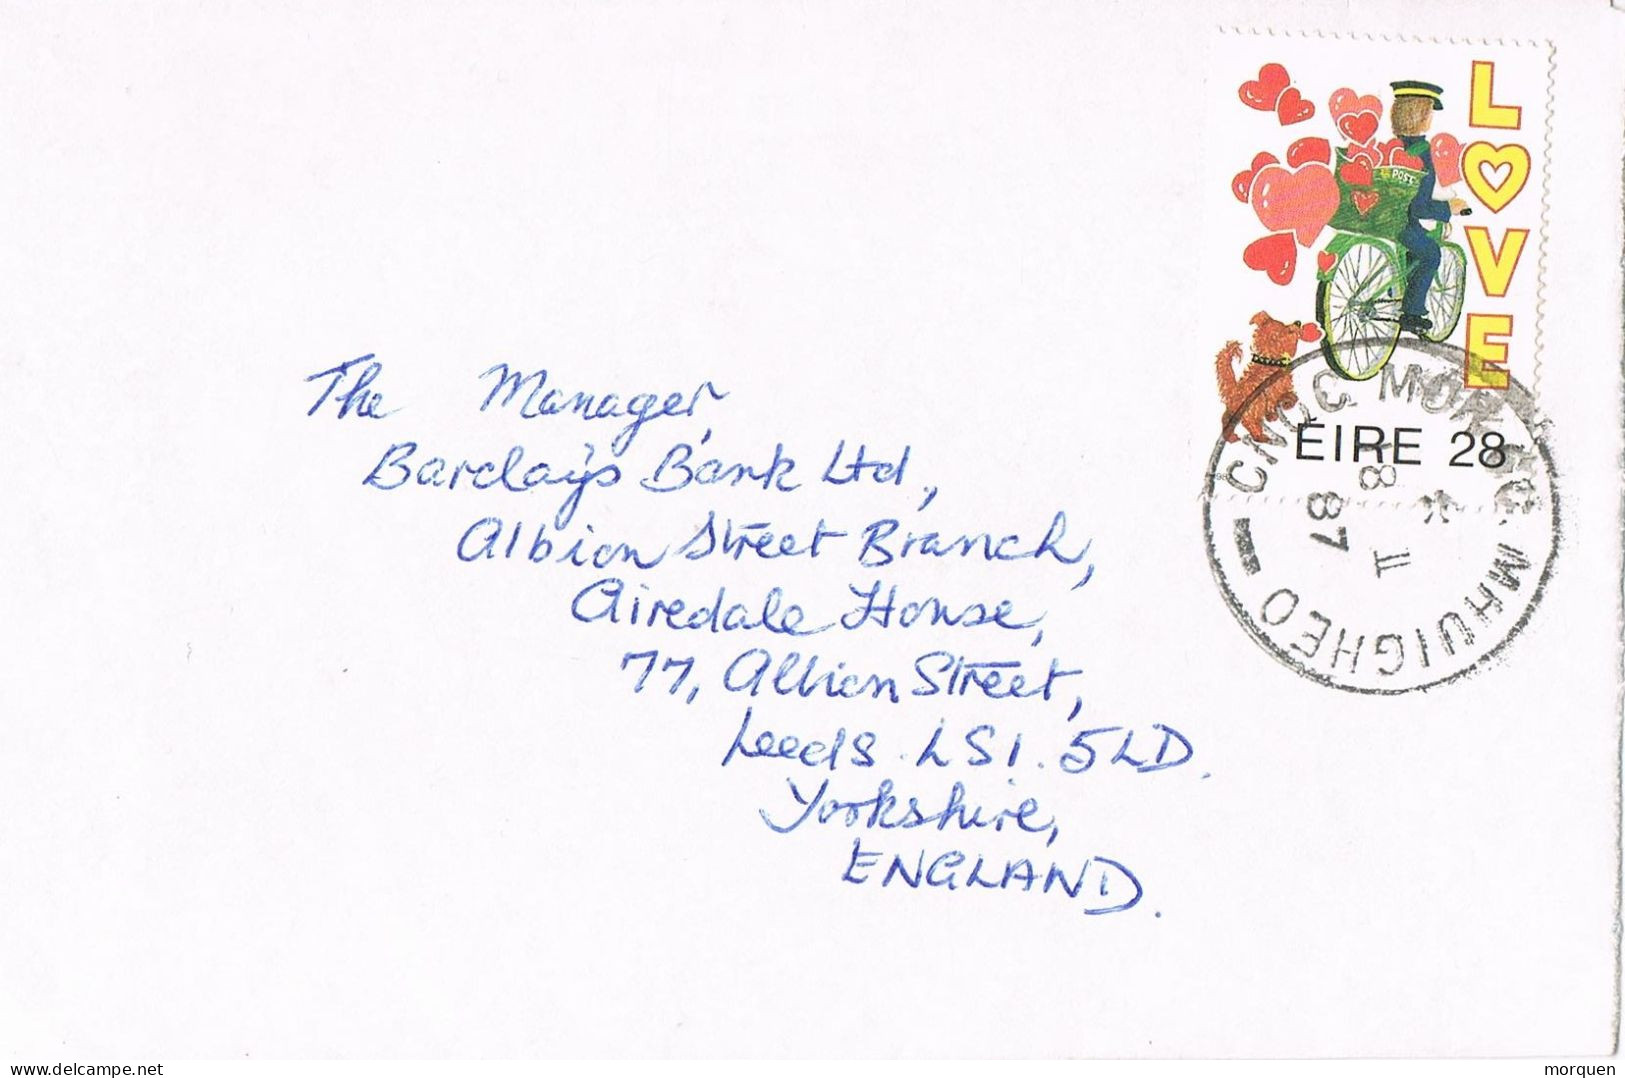 LOVE
POST
ÉIRE 28
CNOC MÓR CO. MHUIGHEO
8 II
87
The Manager,
Barclays Bank Ltd.,
Albion Street Branch,
Airedale House,
77, Albion Street,
Leeds. LS1. 5LD.
Yorkshire,
ENGLAND.
delcampe.net
morquen